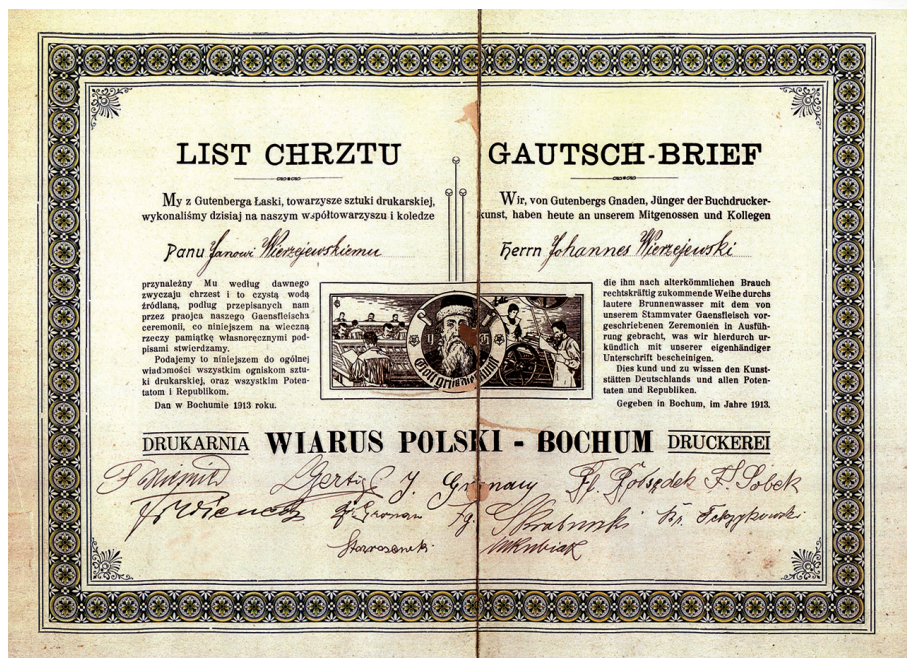 LIST CHRZTU
My z Gutenberga Łaski, towarzysze sztuki drukarskiej,
wykonaliśmy dzisiaj na naszym współtowarzyszu i koledze
Panu Janowi Wierzejewskiemu
przynależny Mu według dawnego
zwyczaju chrzest i to czystą wodą
źródlaną, podług przepisanych nam
przez praojca naszego Gaensfleischa
ceremonii, co niniejszem na wieczną
rzeczy pamiątkę własnoręcznymi pod-
pisami stwierdzamy.
Podajemy to niniejszem do ogólnej
wiadomości wszystkim ogniskom sztu-
ki drukarskiej, oraz wszystkim Poten-
tatom i Republikom.
Dan w Bochumie 1913 roku.
GAUTSCH-BRIEF
Wir, von Gutenbergs Gnaden, Jünger der Buchdrucker-
kunst, haben heute an unserem Mitgenossen und Kollegen
Herrn Johannes Wierzejewski
die ihm nach alterkömmlichen Brauch
rechtskräftig zukommende Weihe durchs
lautere Brunnenwasser mit dem von
unserem Stammvater Gaensfleisch vor-
geschriebenen Zeremonien in Ausfüh-
rung gebracht, was wir hierdurch ur-
kündlich mit unserer eigenhändiger
Unterschrift bescheinigen.
Dies kund und zu wissen den Kunst-
stätten Deutschlands und allen Poten-
taten und Republiken.
Gegeben in Bochum, im Jahre 1913.
Gott grüß die Kunst
DRUKARNIA WIARUS POLSKI - BOCHUM DRUCKEREI
J. Gronau F. Sobek
F. Gronau Skrabunski